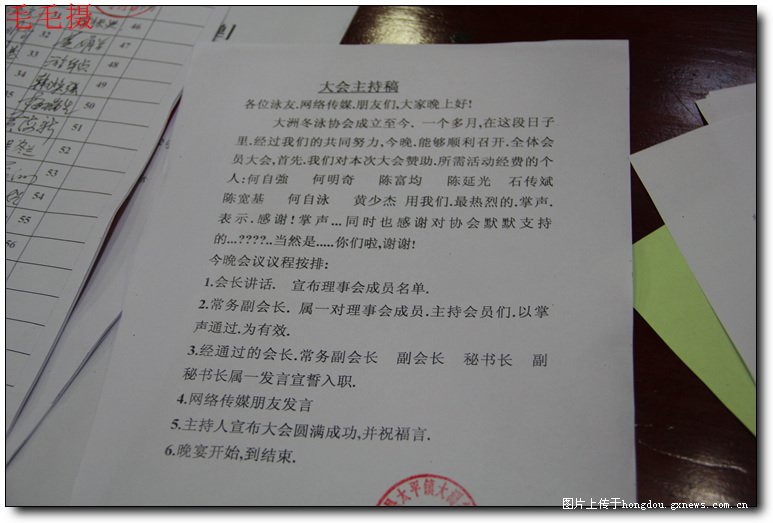 毛毛摄
46
32
47
33
48
34
49
35
50
51
52
53
54
55
56
大会主持稿
各位泳友.网络传媒.朋友们,大家晚上好!
大洲冬泳协会成立至今. 一个多月,在这段日子
里.经过我们的共同努力,今晚.能够顺利召开.全体会
员大会,首先.我们对本次大会赞助.所需活动经费的个
人:何自強 何明奇 陈富均 陈延光 石传斌
陈宽基 何自泳 黄少杰 用我们.最热烈的.掌声.
表示.感谢!掌声...同时也感谢对协会默默支持
的...????..当然是.....你们啦,谢谢!
今晚会议议程按排:
1.会长讲话. 宣布理事会成员名单.
2.常务副会长. 属一对理事会成员.主持会员们.以掌
声通过.为有效.
3.经通过的会长.常务副会长 副会长 秘书长 副
秘书长属一发言宣誓入职.
4.网络传媒朋友发言
5.主持人宣布大会圆满成功,并祝福言.
6.晚宴开始,到结束.
县太平镇大
图片上传于hongdou.gxnews.com.cn